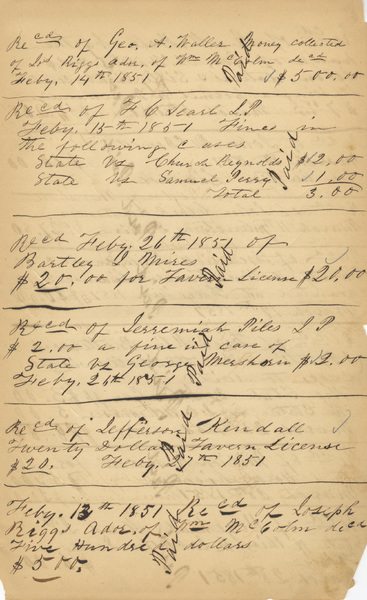 Recd of Geo. A. Waller Money collected
of Jos Riggs admr. of Wm McColm decd
Feby. 14th 1851 Paid $500.00
Recd of F C Searl J.P
Feby. 15th 1851 Fines in
the following cases
State vs Church Reynolds $2.00
State vs Samuel Perry $1.00
Total 3.00
Paid
Recd Feby. 26th 1851 of
Bartley Mires
$20.00 for Tavern License $20.00
Paid
Recd of Jerremiah Piles J P
$2.00 a fine in case of
State vs George Mershorn $2.00
Feby. 1851
Paid
Recd of Jefferson Kendall
Twenty Dollars Tavern License
$20. Feby. 1851
Paid
Feby. 1851 Recd of Joseph
Riggs Admr. of Wm McColm decd
Five Hundred dollars
$500.
Paid